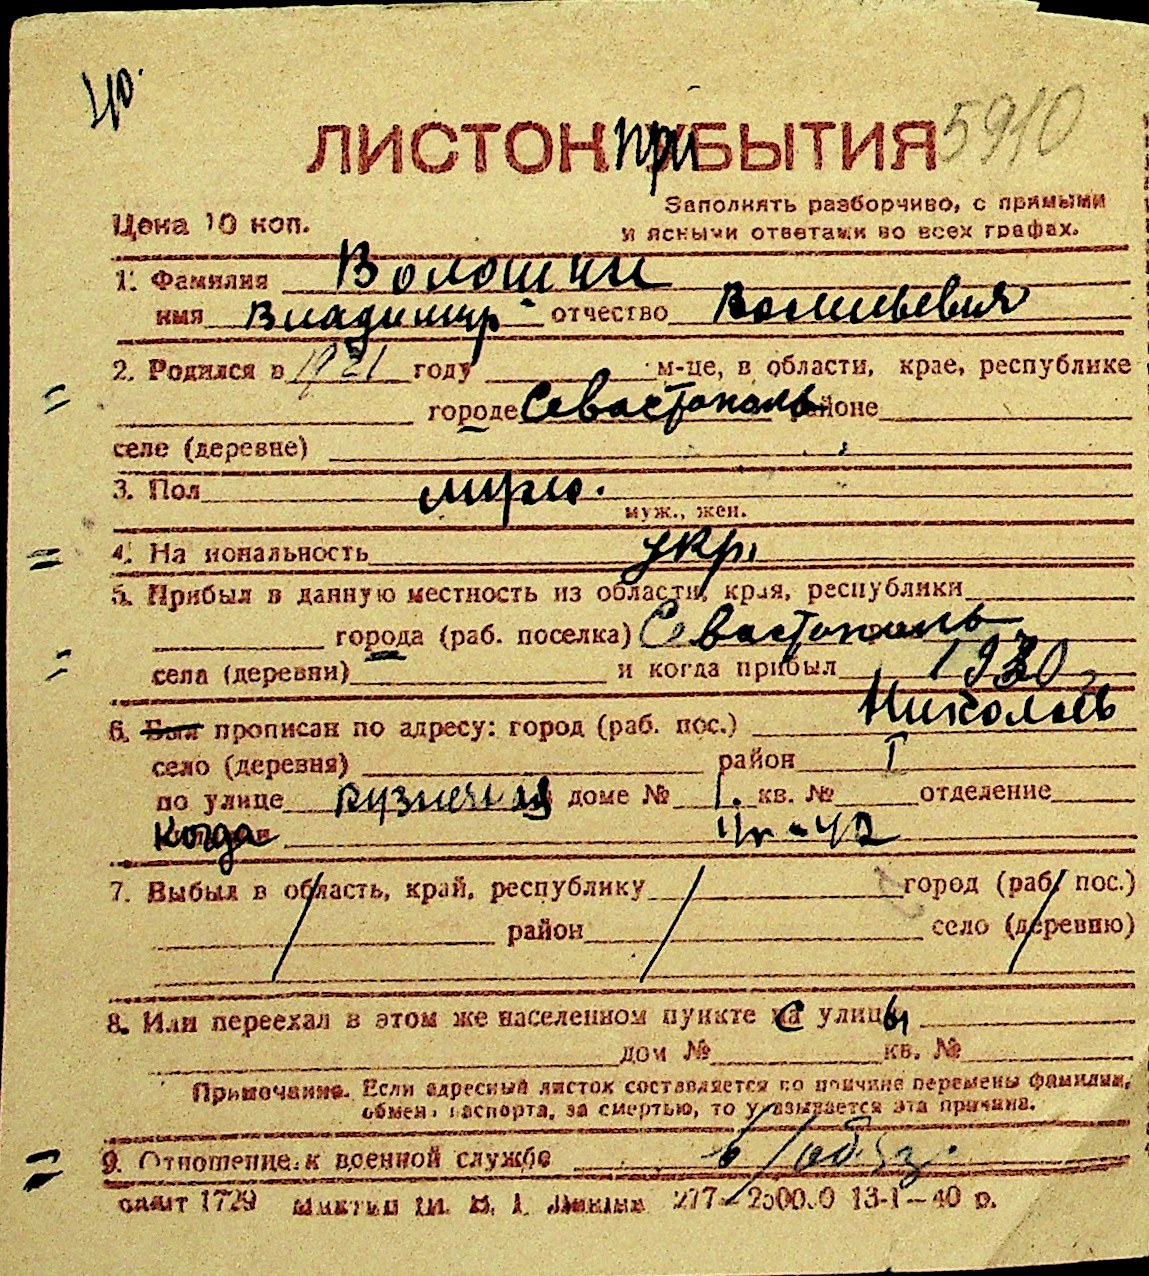 ЛИСТОК при БЫТИЯ 5910
Заполнять разборчиво, с прямыми
Цена 10 коп. и ясными ответами во всех графах.
1. Фамилия Волошин
имя Владимир отчество Васильевич
2. Родился в 1921 году м-це, в области, крае, республике
городе Севастополь районе
селе (деревне)
3. Пол
муж., жен.
4. Национальность укр.
5. Прибыл в данную местность из области, края, республики
города (раб. поселка) Севастополь
села (деревни) и когда прибыл 1930
6. Был прописан по адресу: город (раб. пос.)
село (деревня) район I
по улице Кузнечная доме № 1. кв. № отделение
Когда
7. Выбыл в область, край, республику город (раб. пос.)
район село (деревню)
8. Или переехал в этом же населенном пункте с улицы
дом № кв. №
Примечание. Если адресный листок составляется по причине перемены фамилии,
обмена паспорта, за смертью, то указывается эта причина.
9. Отношение к военной службе в/обяз.
1729 277— 13-1—40 р.